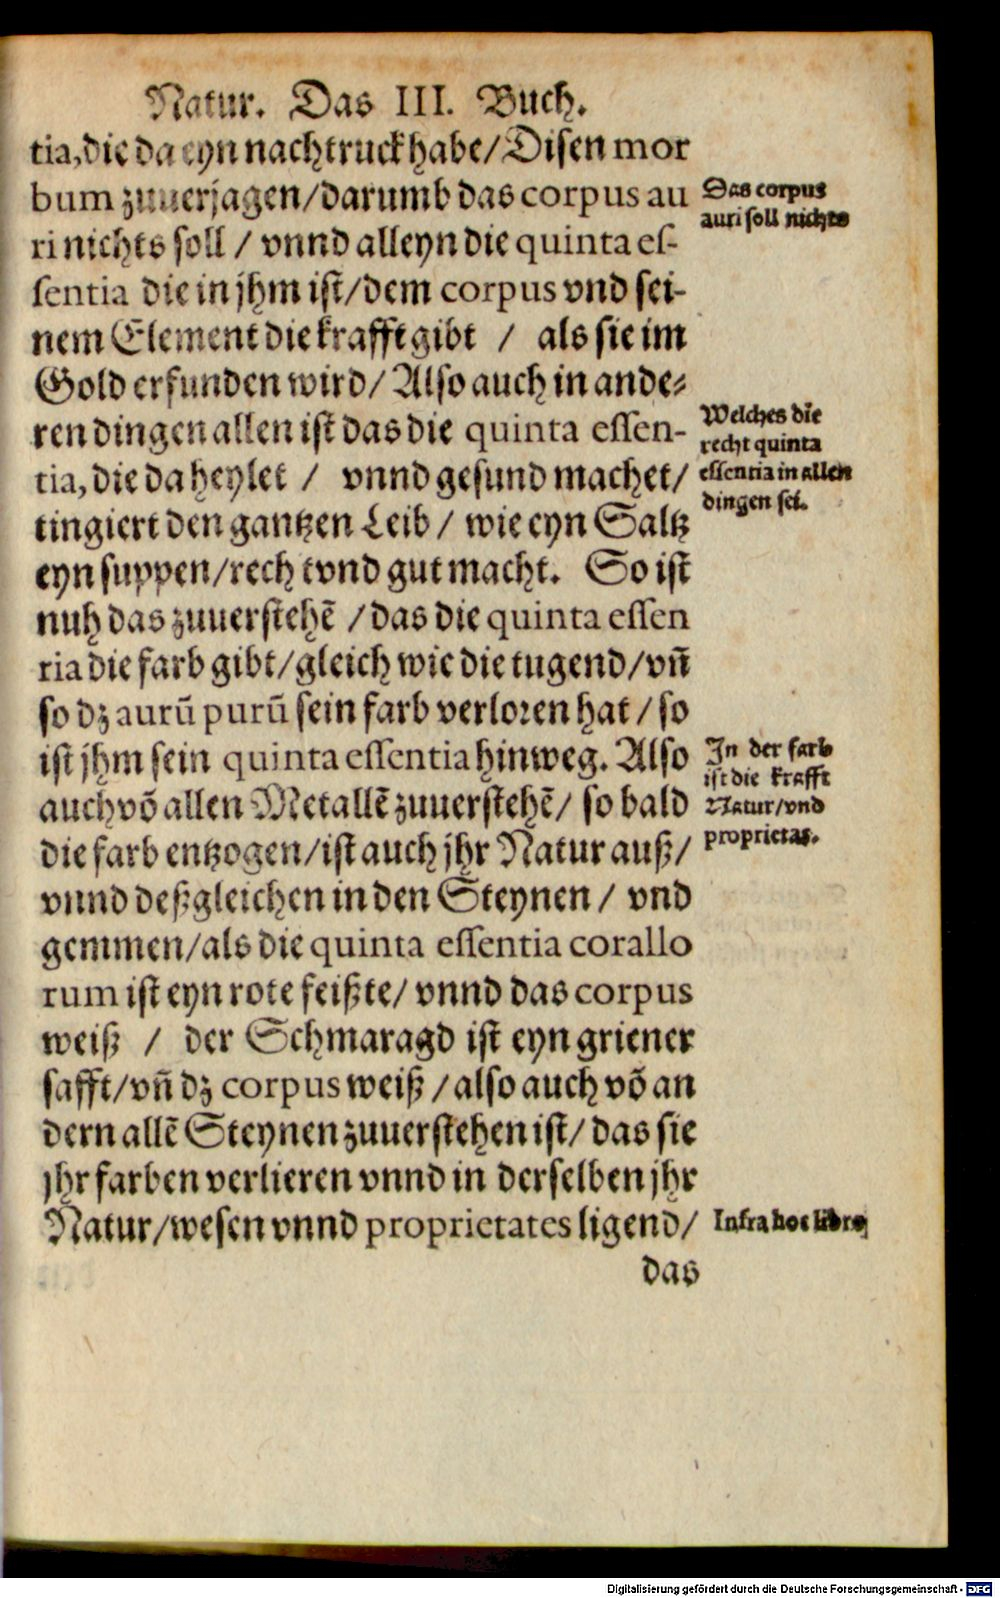 Natur. Das III. Buch.
tia, die da eyn nachtruck habe/ Disen mor
bum zuuerjagen/ darumb das corpus au
ri nichts soll / vnnd alleyn die quinta es-
sentia die in jhm ist/ dem corpus vnd sei-
nem Element die krafft gibt / als sie im
Gold erfunden wird/ Also auch in ande-
ren dingen allen ist das die quinta essen-
tia, die da heylet / vnnd gesund machet/
tingiert den gantzen Leib / wie eyn Saltz
eyn suppen/ rech tvnd gut macht. So ist
nuh das zuuerstehē / das die quinta essen
ria die farb gibt/ gleich wie die tugend/ vn̄
so dz aurū purū sein farb verloren hat / so
ist jhm sein quinta essentia hinweg. Also
auch võ allen Metallē zuuerstehē/ so bald
die farb entzogen/ ist auch jhr Natur auß/
vnnd deßgleichen in den Steynen / vnd
gemmen/ als die quinta essentia corallo
rum ist eyn rote feißte/ vnnd das corpus
weiß / der Schmaragd ist eyn griener
safft/ vn̄ dz corpus weiß / also auch võ an
dern allē Steynen zuuerstehen ist/ das sie
jhr farben verlieren vnnd in derselben jhr
Natur/ wesen vnnd proprietates ligend/
das
Das corpus
auri soll nichts
Welches die
recht quinta
essentia in allen
dingen sei.
In der farb
ist die krafft
Natur/ vnd
proprietas.
Infra hoc libro
Digitalisierung gefördert durch die Deutsche Forschungsgemeinschaft - DFG